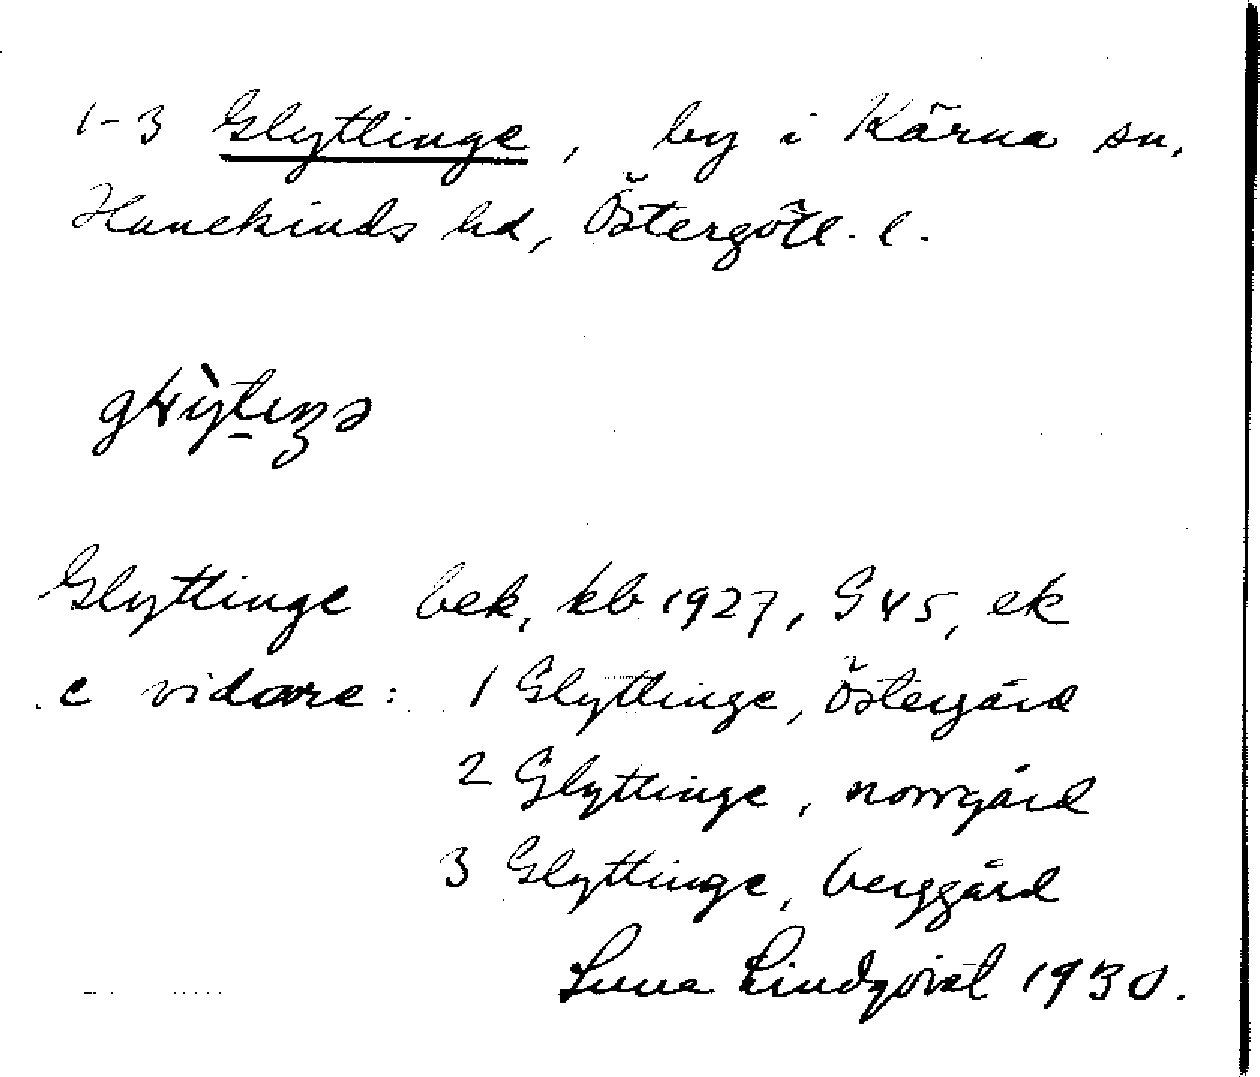 1-3 Glyttinge, by i Kärna sn,
Hanekinds hd, Östergötl. l.
Glyttinge bek, kb 1927, G45, ek
e vidare: 1 Glyttinge, Östergård
2 Glyttinge, norrgård
3 Glyttinge, berggård
Lindqvist 1930.